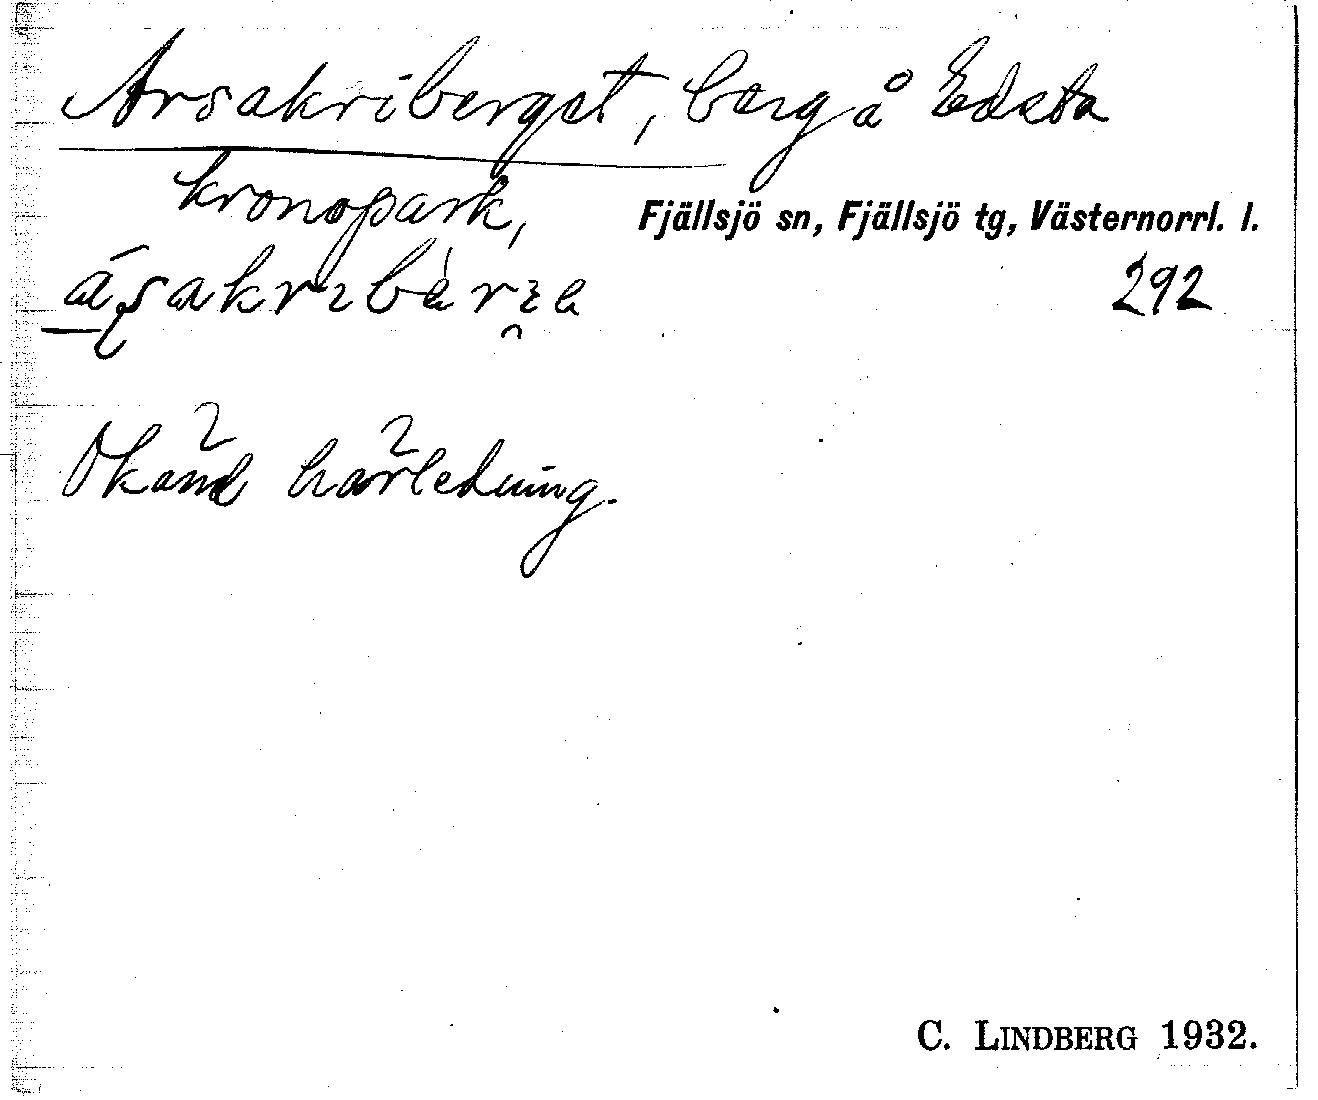 Arsakriberget, berg å Edsta
kronopark,
Fjällsjö sn, Fjällsjö tg, Västernorrl. l.
292
Okänd härledning.
C. LINDBERG 1932.